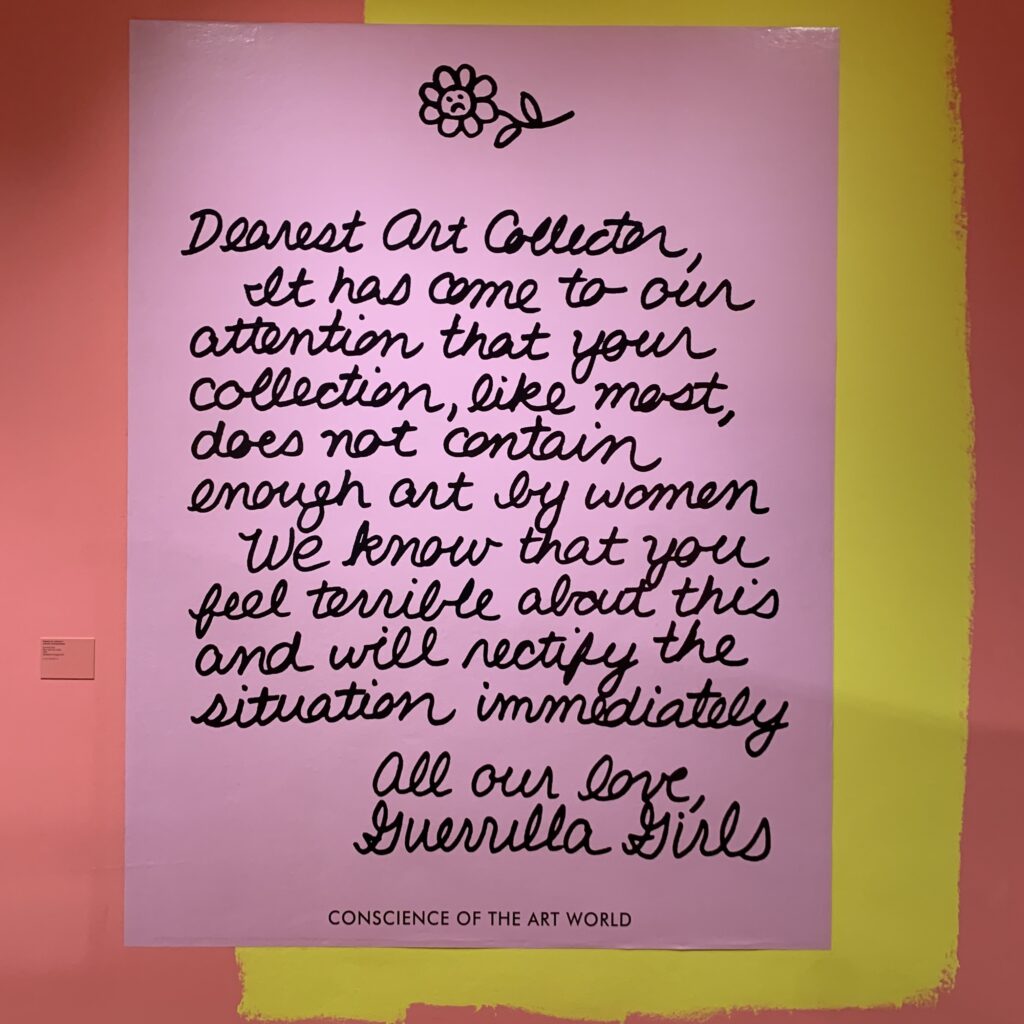 Dearest Art Collector,
It has come to our
attention that your
collection, like most,
does not contain
enough art by women
We know that you
feel terrible about this
and will rectify the
situation immediately
All our love,
Guerrilla Girls
CONSCIENCE OF THE ART WORLD